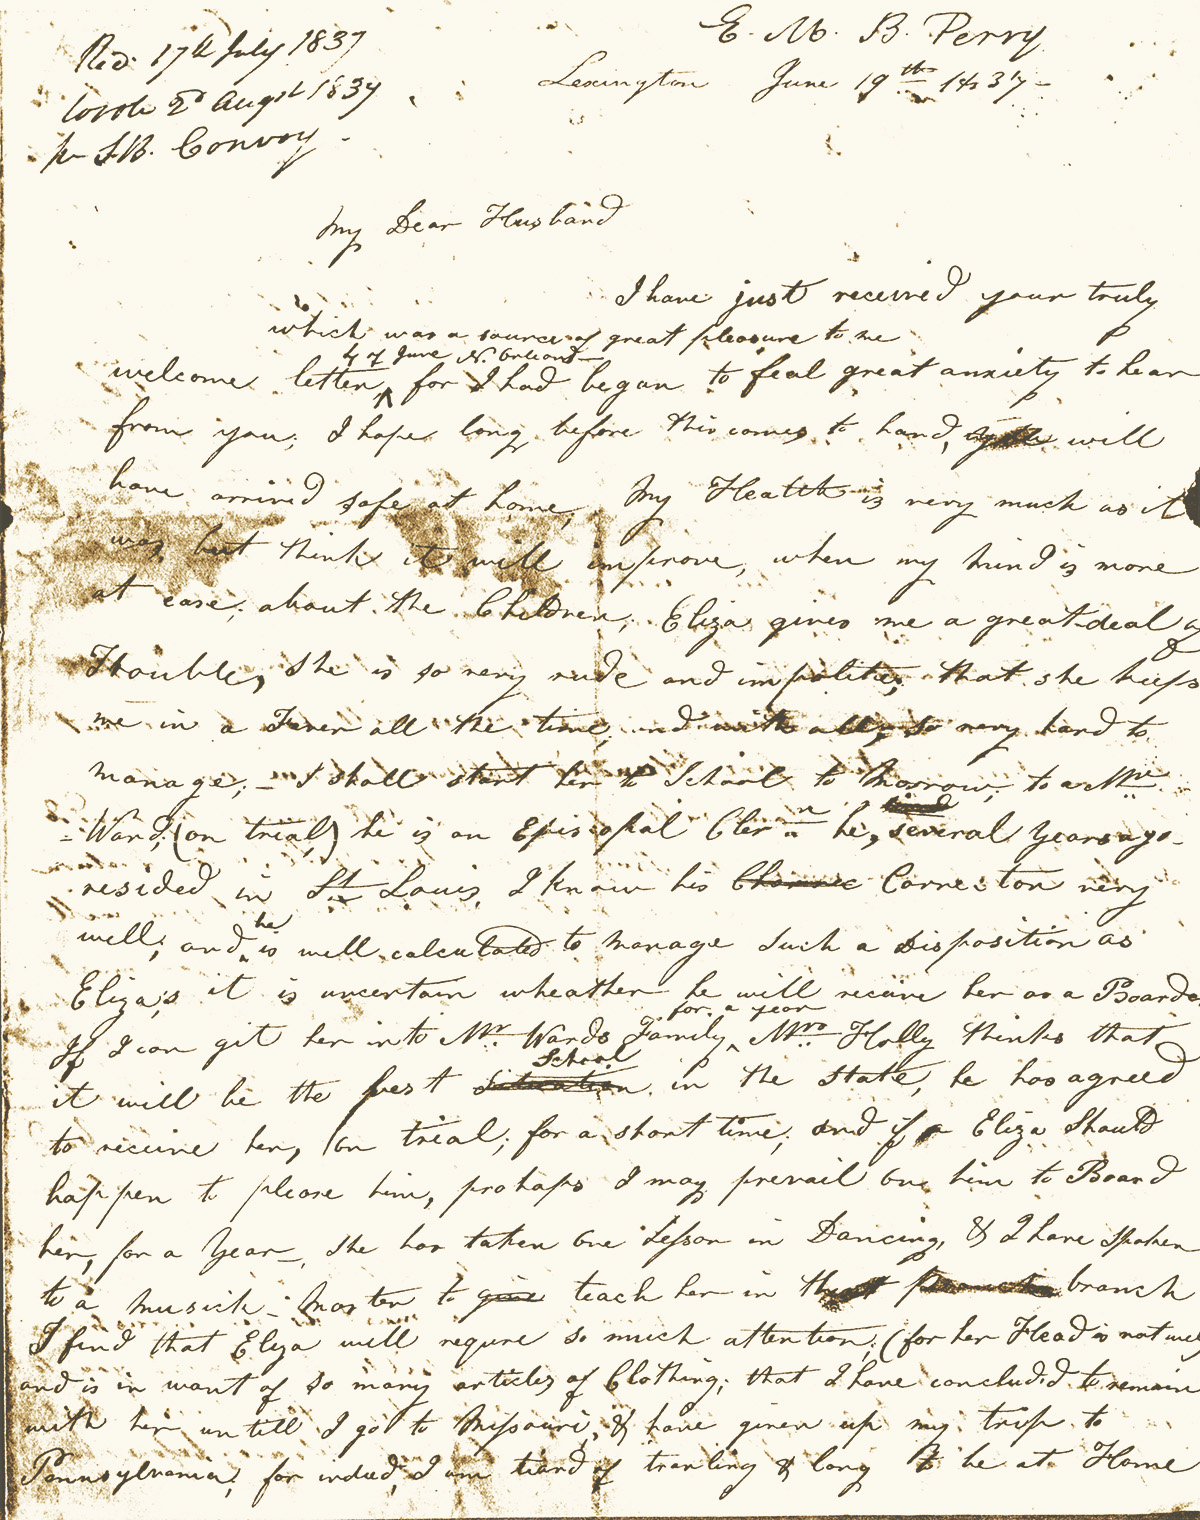 E. M. B. Perry
Recd. 17th July 1837
Lexington June 19th 1837 -
wrote 2d Augst 1837
pr S.B. Convoy -
My Dear Husband
I have just received your truly
which was a source of great pleasure to me
4 of June N. Orleans
welcome letter, for I had began to feal great anxiety to hear
from you; I hope long before this comes to hand, you will
have arrived safe at home, My Health is very much as it
was, but think it will improve, when my mind is more
at ease; about the Children; Eliza gives me a great deal of
Trouble, She is so very rude and impolite; that she keeps
me in a Fever all the time, and with all, So very hard to
manage; - I shall start her to School to Morrow; to a Mr
Ward, (on trial) he is an Episcopal Clern he, several Years ago
resided in St Louis, I know his Carrecter very
well; and he is well calculated to manage Such a Disposition as
Eliza;s it is uncertain wheather he will receive her as a Boarder
for a year
If I can git her into Mr. Wards Family, Mrs Holly thinks that
School
it will be the best Situation in the State, he has agreed
to receive her, on trial; for a short time; and if a Eliza Should
happen to please him, prohaps I may prevail one him to Board
her, for a Year -, she has taken one Lesson in Dancing, & I have spoken
to a Musick - Master to give teach her in that branch
I find that Eliza will requre so much attention; (for her Head is not well
and is in want of So many articles of Clothing; that I have concluded to remain
with her untill I go to Missouri, & have given up my trip to
Pennsylvania; for indeed, I am tiard of travling & long to be at Home